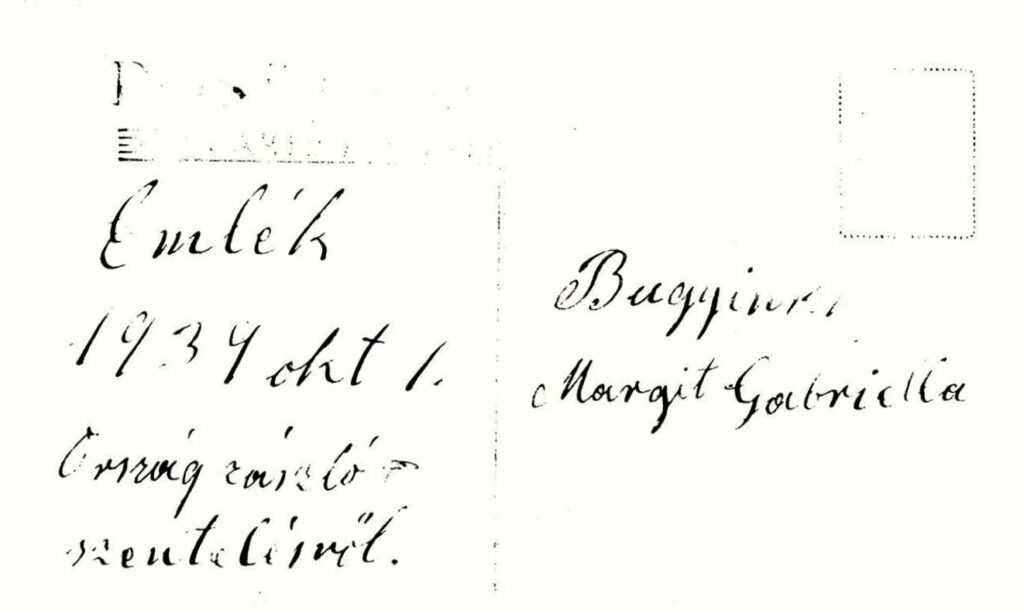 Emlék
1939 okt 1.
Ország zászló =
szentelésről.
Margit Gabriella